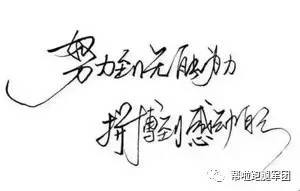 努力到无能为力
拼搏到感动自己
帮啦跑腿军团